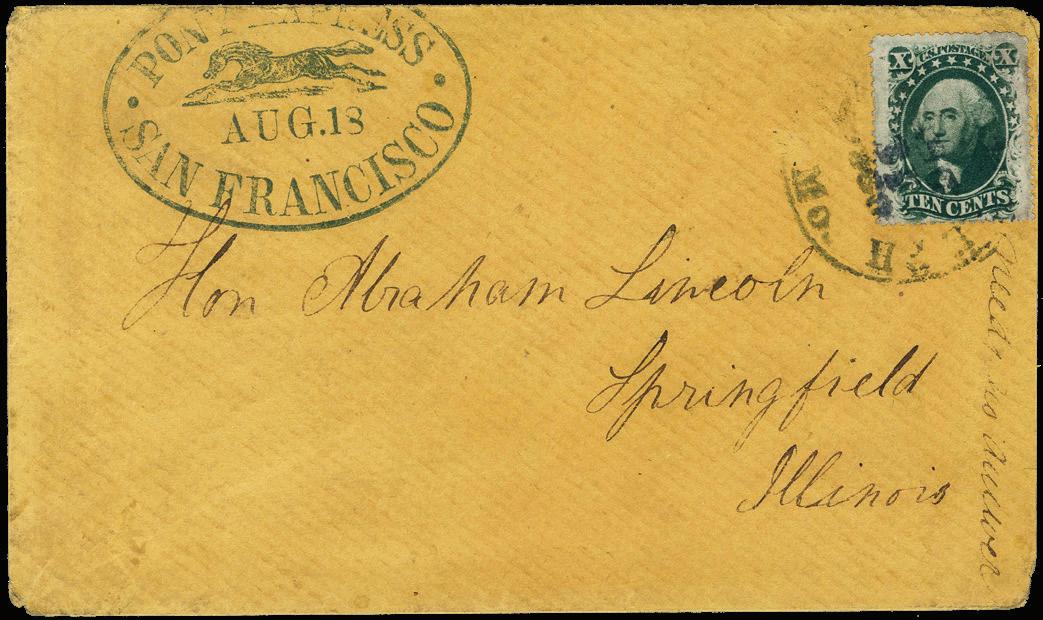 PONY EXPRESS
AUG.18
SAN FRANCISCO
X U.S. POSTAGE X
TEN CENTS
H MO.
Hon Abraham Lincoln
Springfield
Illinois
needs no answer